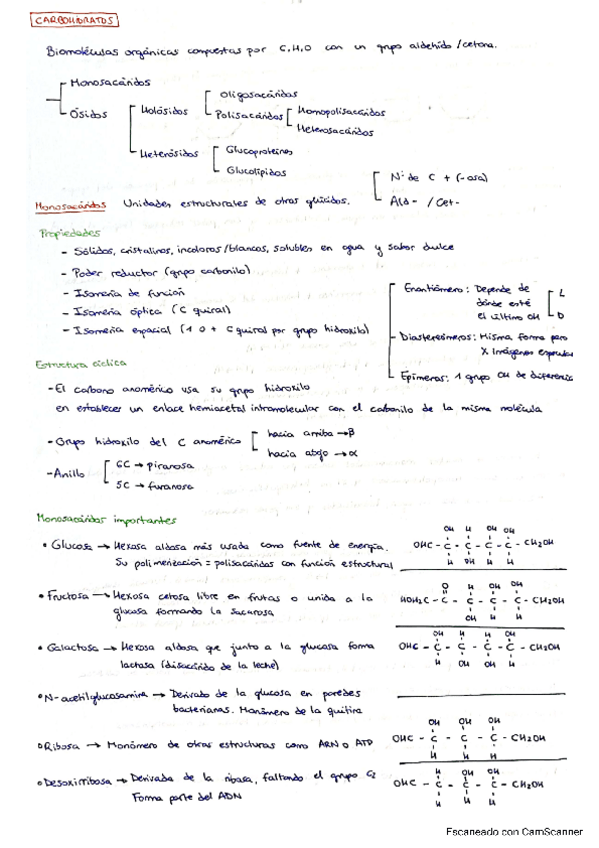 CARBOHIDRATOS
Biomoléculas orgánicas compuestas por C,H,O con un grupo aldehído / cetona.
Monosacáridos
Ósidos
Holósidos
Oligosacáridos
Polisacáridos
Homopolisacáridos
Heterosacáridos
Heterósidos
Glucoproteínas
Glucolípidos
Monosacáridos Unidades estructurales de otros glúcidos.
Nº de C + (-osa)
Ald- / Cet-
Propiedades
- Sólidos, cristalinos, incoloros/blancos, solubles en agua y sabor dulce
- Poder reductor (grupo carbonilo)
- Isomería de función
- Isomería óptica (C quiral)
- Isomería espacial (1 o + C quiral por grupo hidroxilo)
Enantiómero: Depende de
dónde esté
el último OH
L
D
- Diastereómeros: Misma forma pero
X Imágenes especulares
Epímeros: 1 grupo OH de diferencia
Estructura cíclica
- El carbono anomérico usa su grupo hidroxilo
en establecer un enlace hemiacetal intramolecular con el carbonilo de la misma molécula
- Grupo hidroxilo del C anomérico
hacia arriba → β
hacia abajo → α
- Anillo
6C → piranosa
5C → furanosa
Monosacáridos importantes
• Glucosa → Hexosa aldosa más usada como fuente de energía.
Su polimerización = polisacáridos con función estructural
OH H OH OH
OHC - C - C - C - C - CH2OH
H OH H H
• Fructosa → Hexosa cetosa libre en frutas o unida a la
glucosa formando la sacarosa
O H OH OH
HOH2C - C - C - C - C - CH2OH
OH H H
• Galactosa → Hexosa aldosa que junto a la glucosa forma
lactosa (disacárido de la leche)
OH H H OH
OHC - C - C - C - C - CH2OH
H OH OH H
• N-acetilglucosamina → Derivado de la glucosa en paredes
bacterianas. Monómero de la quitina
• Ribosa → Monómero de otras estructuras como ARN o ATP
OH OH OH
OHC - C - C - C - CH2OH
H H H
• Desoxirribosa → Derivada de la ribosa, faltando el grupo C2
Forma parte del ADN
H OH OH
OHC - C - C - C - CH2OH
H H H
Escaneado con CamScanner